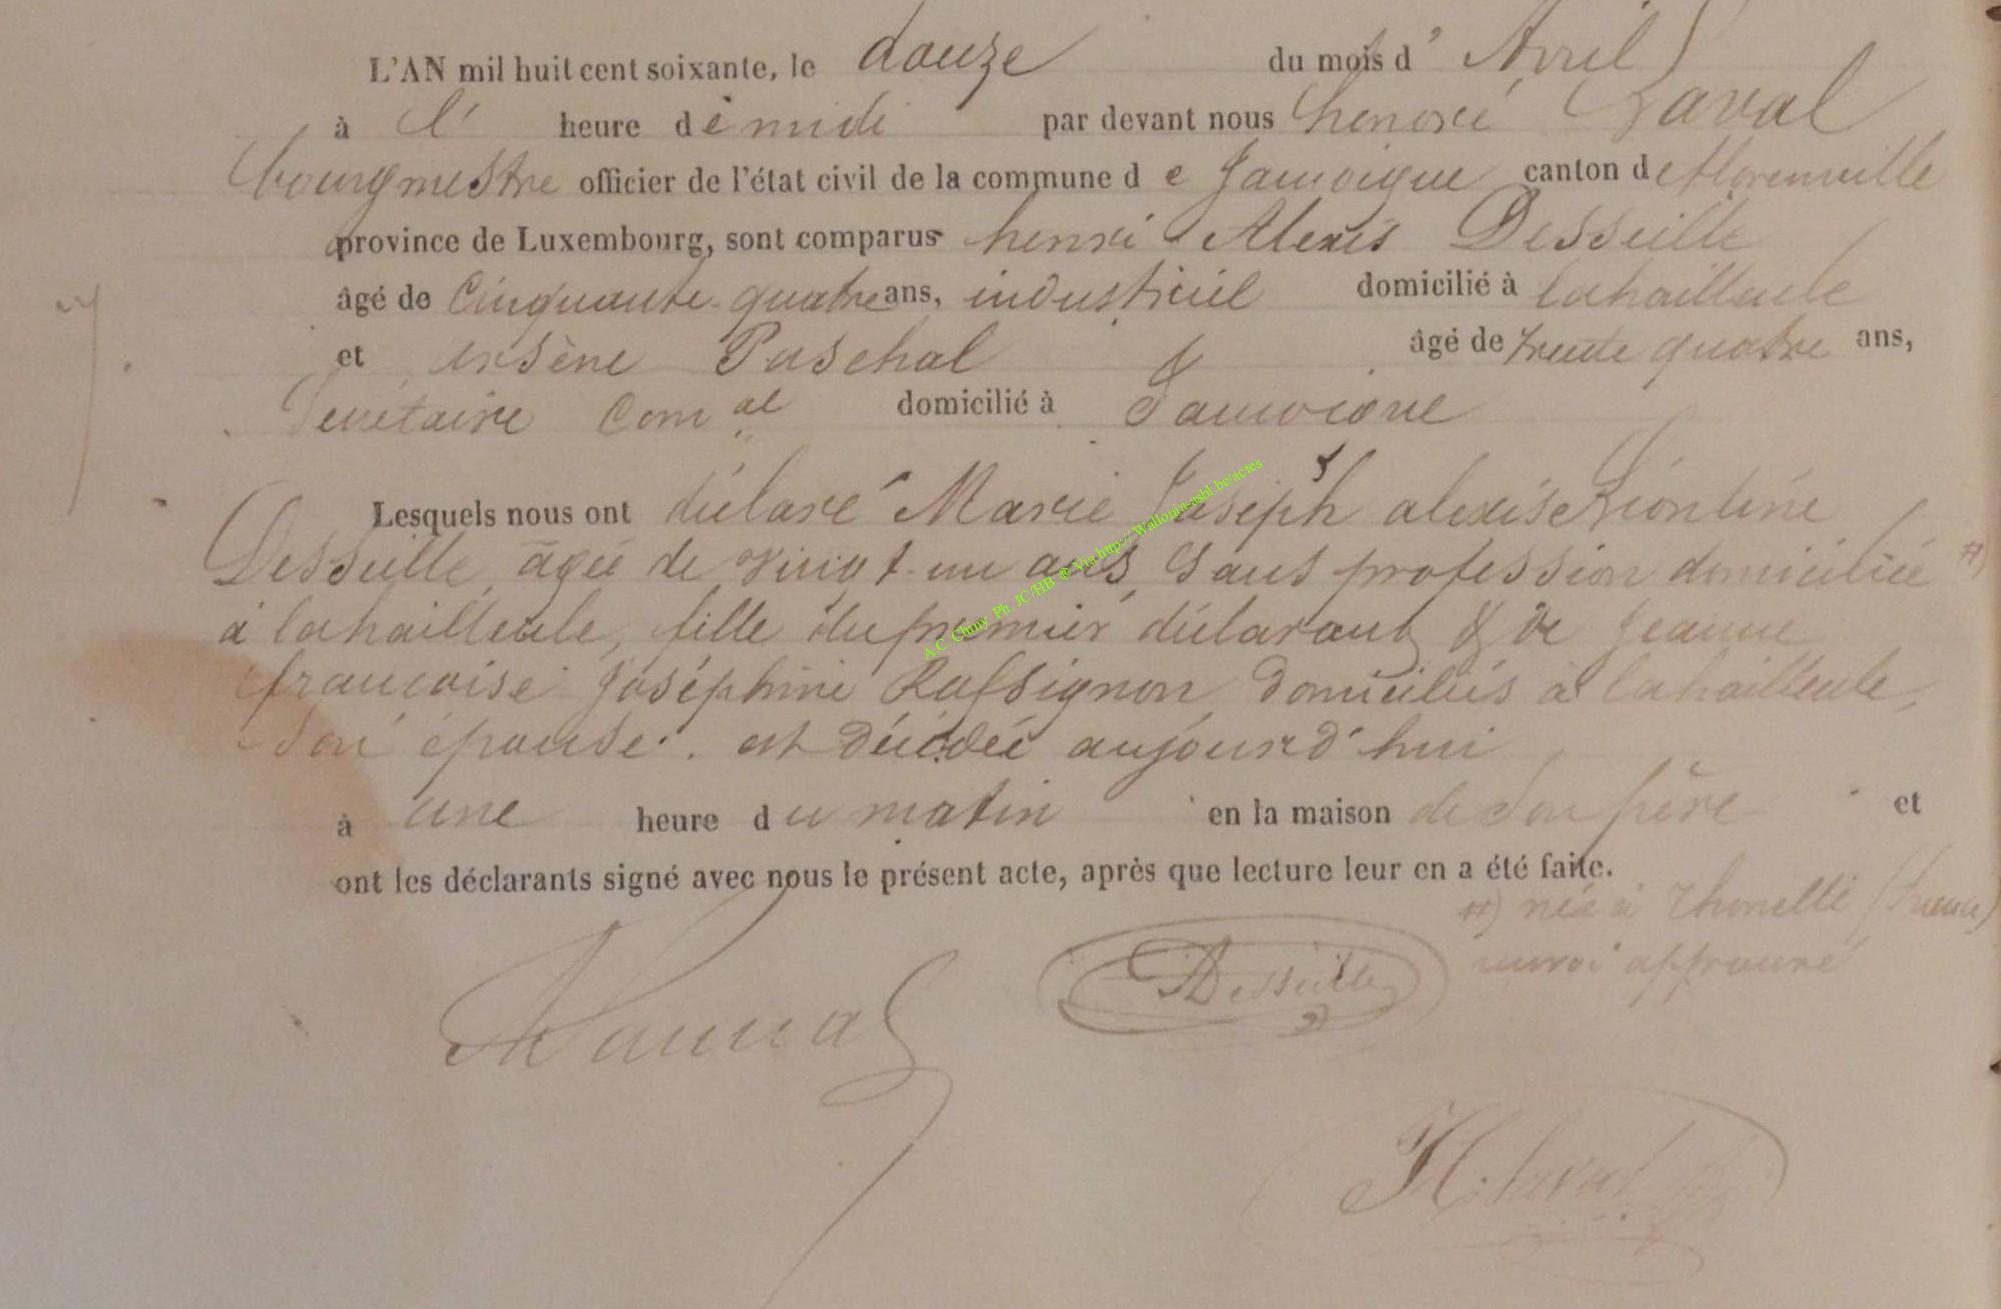 L'AN mil huit cent soixante, le douze du mois d' Avril
à l' heure de midi par devant nous honoré Laval
bourgmestre officier de l'état civil de la commune de Jamoigne canton de florenville
province de Luxembourg, sont comparus henri Alexis Desseille
âgé de Cinquante-quatre ans, industriel domicilié à lahailleule
et arsène Paschal âgé de trente quatre ans,
Secrétaire Com al domicilié à Jamoigne
Lesquels nous ont déclaré Marie Joseph alexise Léontine
Desseille, agée de vingt-un ans, Sans profession domiciliée #)
à lahailleule, fille du premier déclarant & de Jeanne
françoise Joséphine Rossignon, Domiciliés à lahailleule,
Son épouse. est Décédée aujourd'hui
à une heure du matin en la maison de Son père et
ont les déclarants signé avec nous le présent acte, après que lecture leur en a été faite.
#) née à Thonelle
renvoi approuvé
Desseille
H. Laval
A.C. Chiny Ph. JC/HB ® Via http://Wallonia-asbl.be/actes